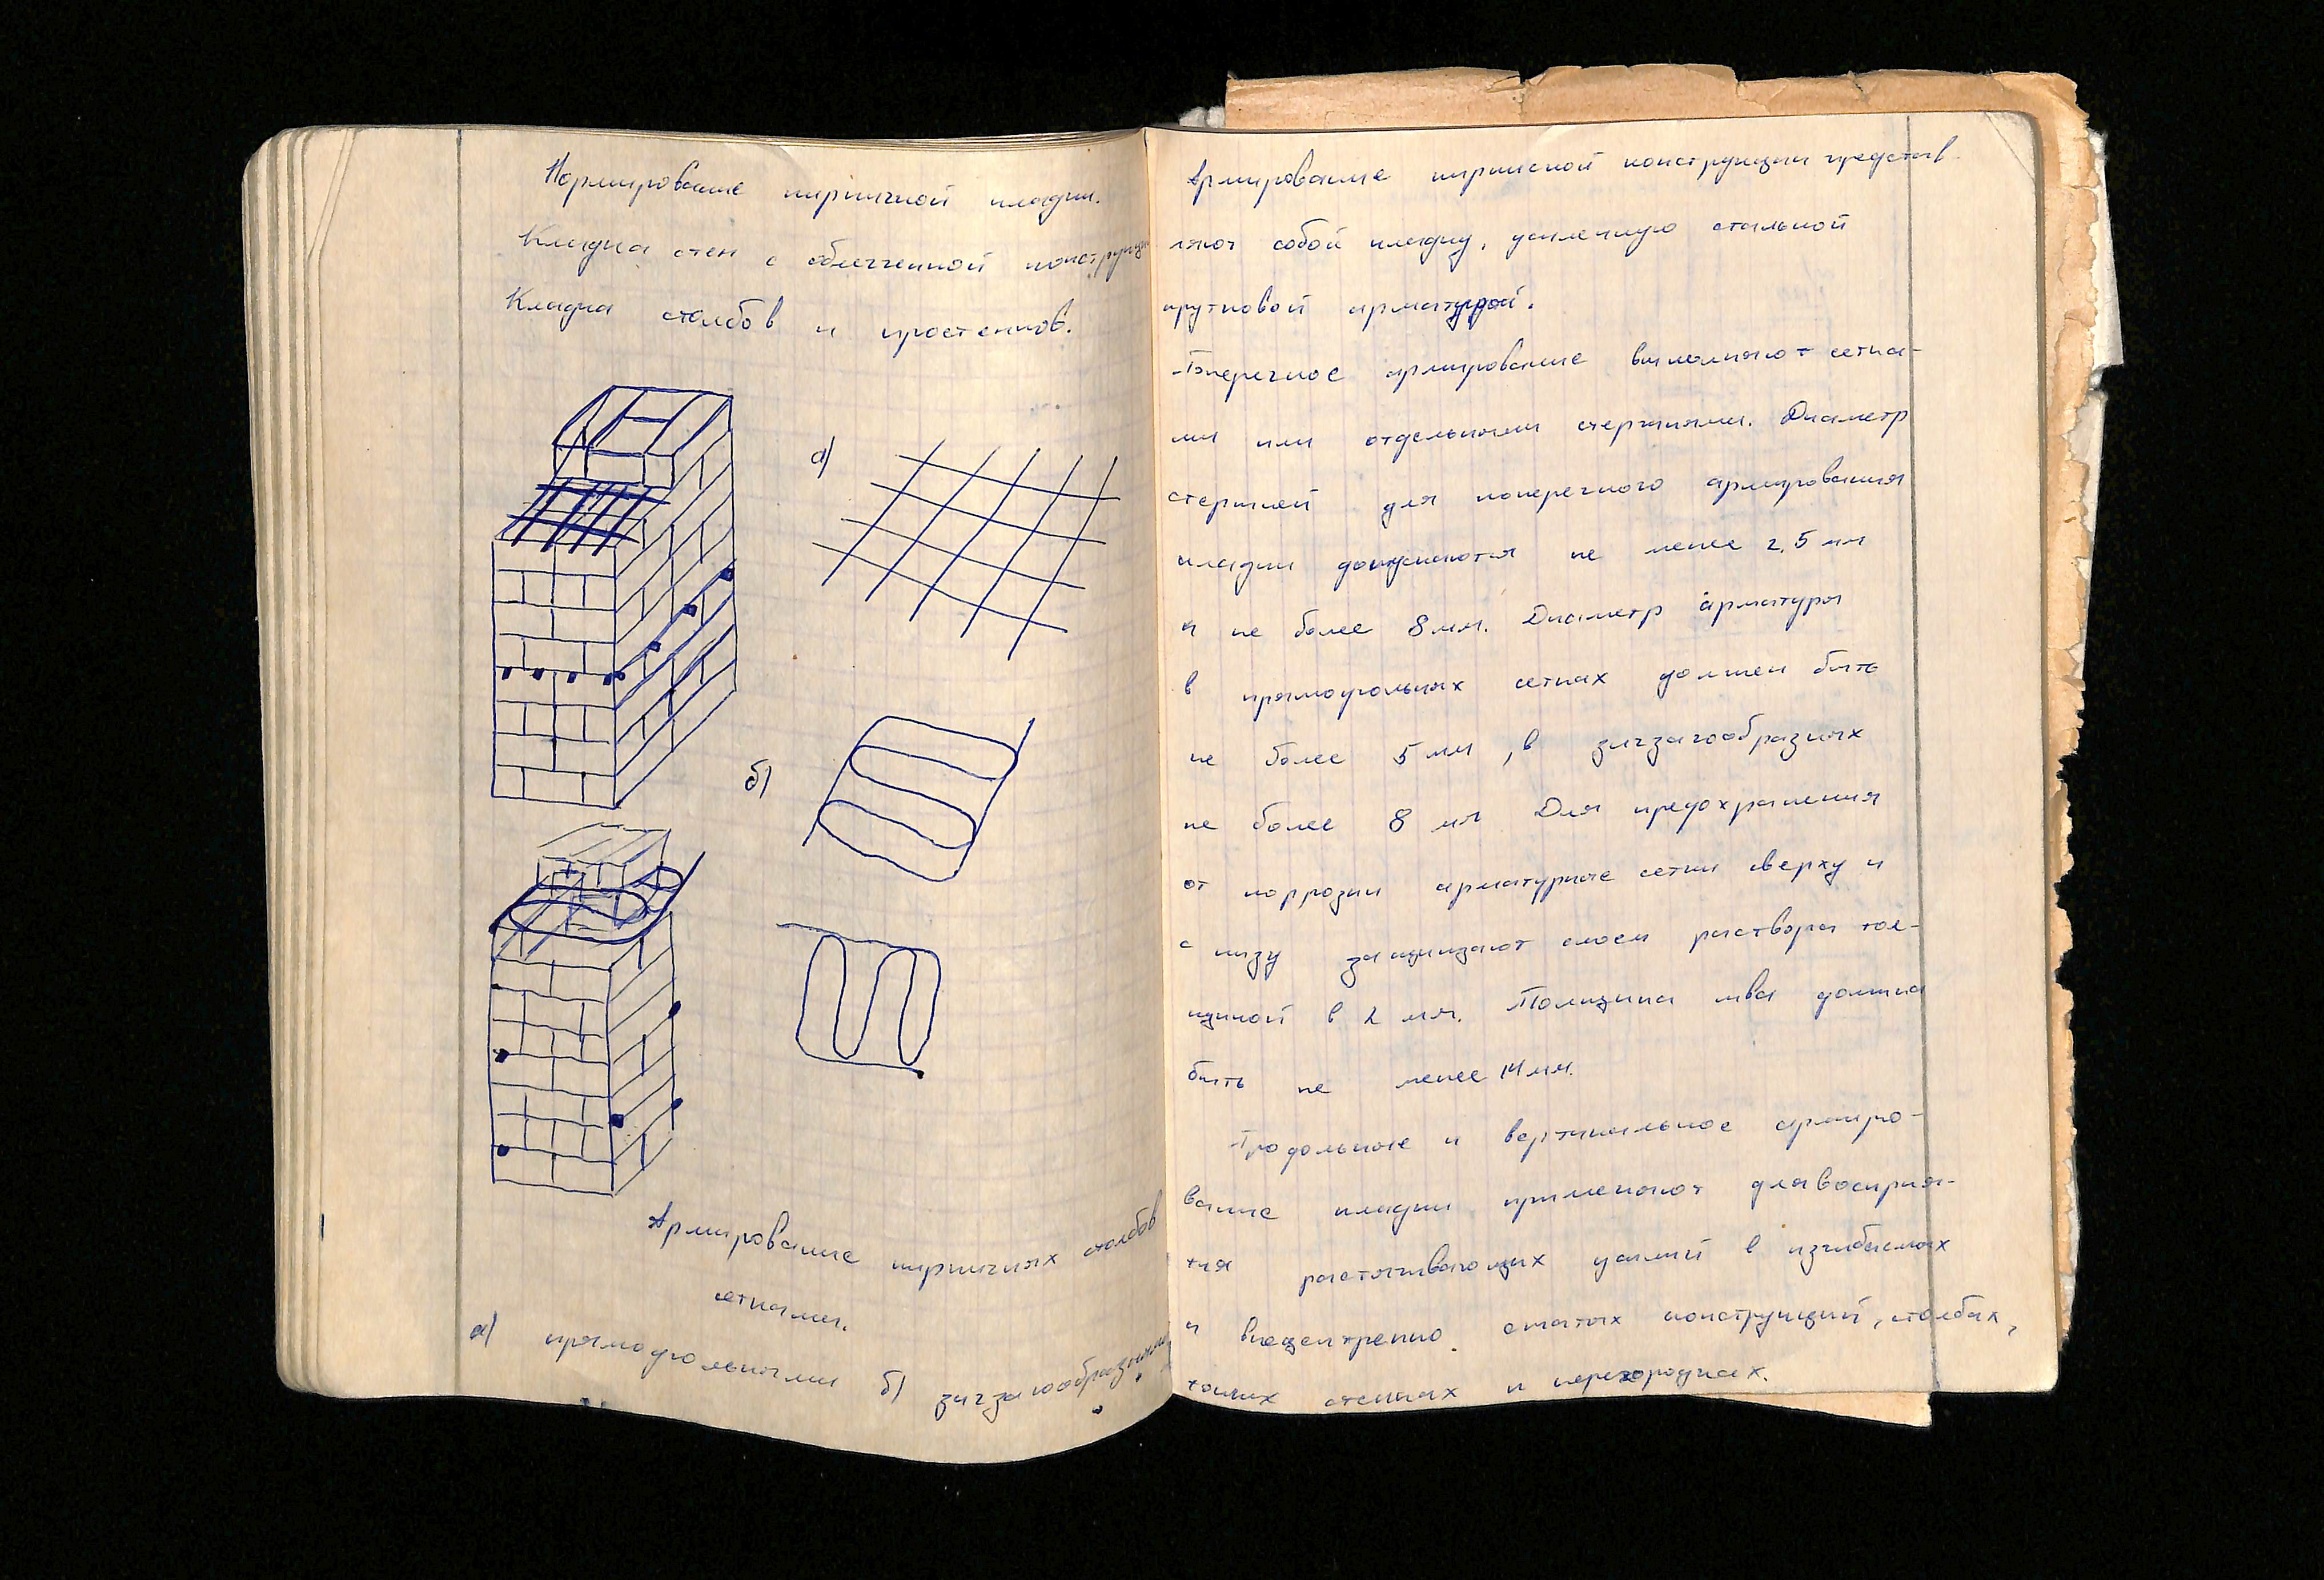 Нормирование кирпичной кладки.
Кладка стен с облегченной конструкци
Кладка столбов и простенков.
а)
б)
Армирование кирпичных столбов
сетками.
а) прямоугольными б) зигзагообразными
Армирование кирписной конструкции представ
ляют собой кладку, усиленную стальной
прутковой арматурой.
Поперечное армирование выполняют сетка-
ми или отдельными стержнями. Диаметр
стержней для поперечного армирования
кладки допускаются не менее 2,5 мм
и не более 8 мм. Диаметр арматуры
в прямоугольных сетках должен быть
не более 5 мм, в зигзагообразных
не более 8 мм Для предохранения
от коррозии арматурные сетки сверху и
с низу защищают слоем раствора тол-
щиной в 2 мм. Толщина шва должна
быть не менее 14 мм.
Продольные и вертикальное армиро-
вание кладки применяют для восприя-
тия растягивающих усилий в изгибаемых
и внецентренно сжатых конструкций, столбах,
тонких стенках и перегородках.